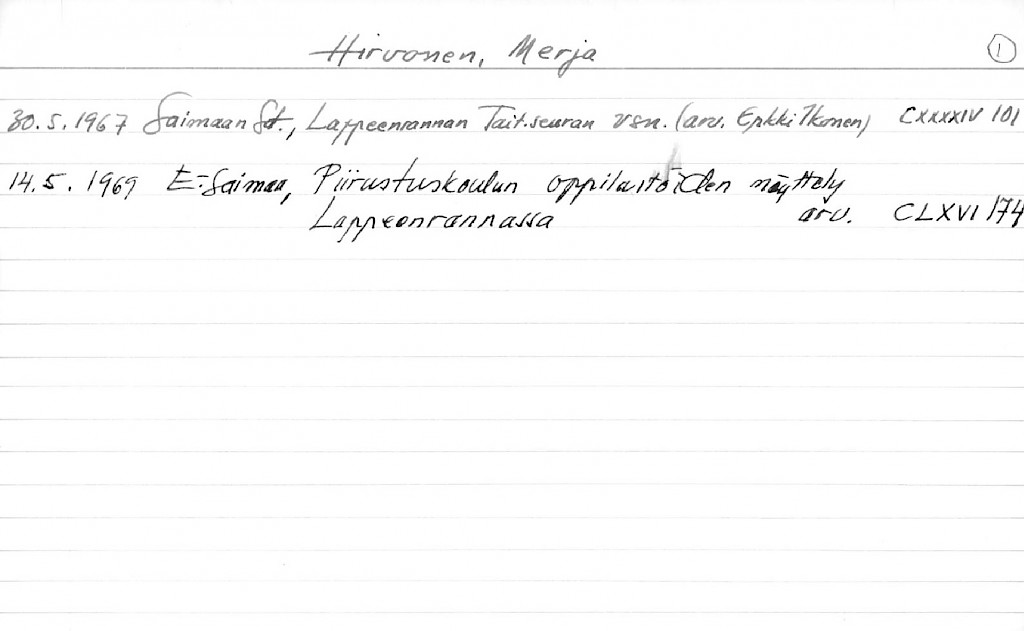 Hirvonen, Merja ①
30.5.1967 Saimaan St., Lappeenrannan Tait.seuran vsn. (arv. Erkki Ikonen) CXXXXIV 101
14.5.1969 E-Saimaa, Piirustuskoulun oppilastöiden näyttely
Lappeenrannassa arv. CLXVI 174